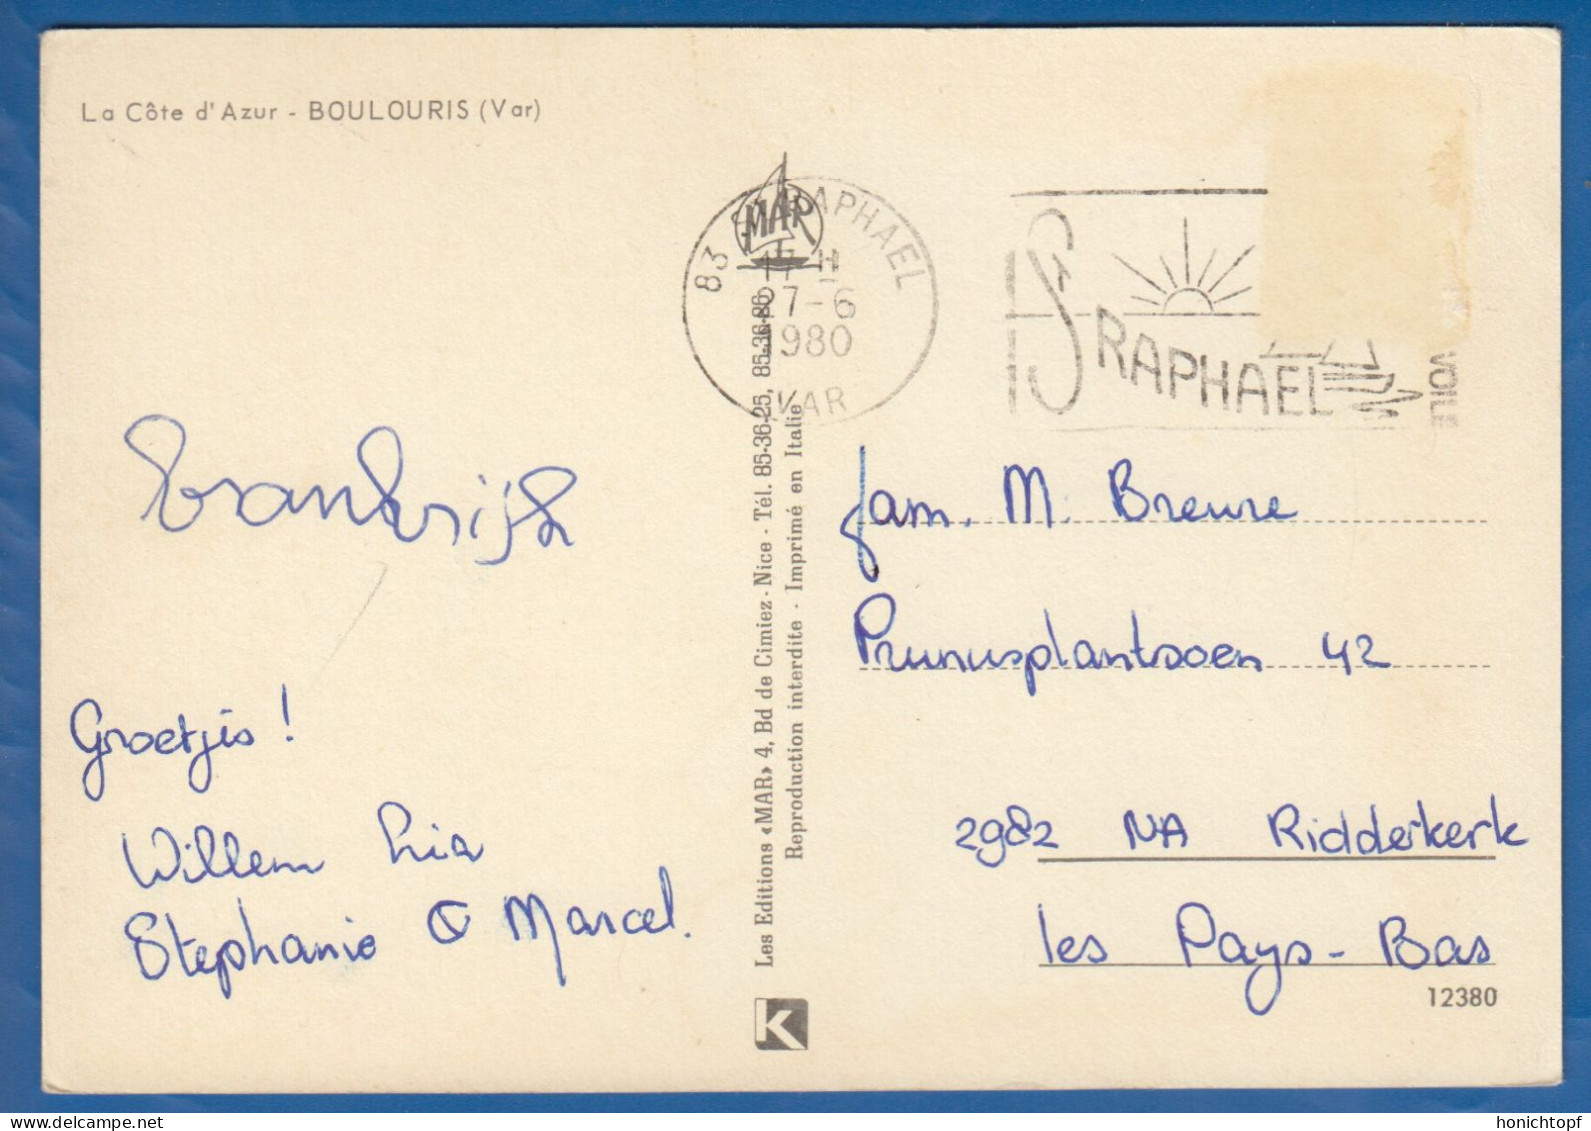 La Côte d'Azur - BOULOURIS (Var)
MAR
83 ST RAPHAEL
17 H
27-6
1980
VAR
ST RAPHAEL
VOILE
Frankrijk
Groetjes!
Willem Lia
Stephanie & Marcel.
Les Editions «MAR» 4, Bd de Cimiez - Nice - Tél. 85-36-25, 85-36-86
Reproduction interdite - Imprimé en Italie
K
fam. M. Breure
Prunusplantsoen 42
2982 NA Ridderkerk
les Pays-Bas
12380
honichtopf